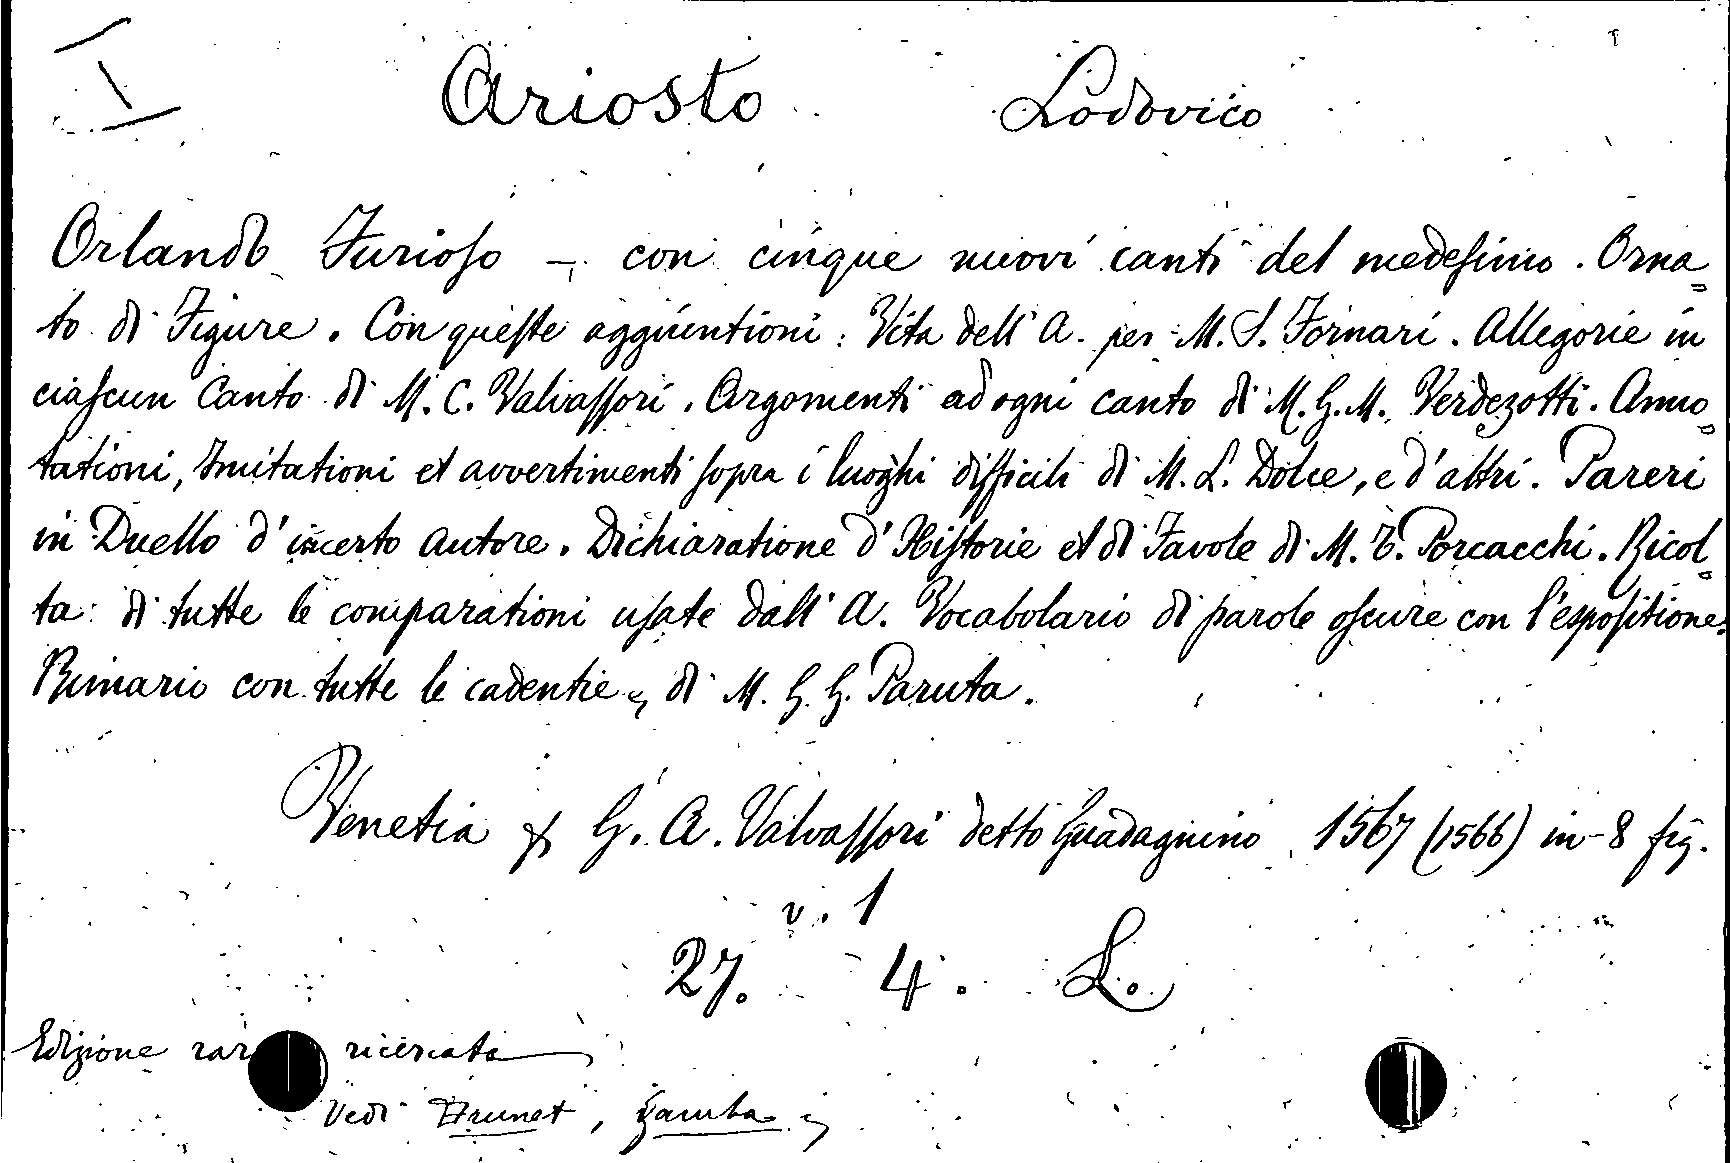 Ariosto Lodovico
Orlando Furioso - con cinque nuovi canti del medesimo. Orna=
to di Figure. Con queste aggiuntioni: Vita dell'A. per M. S. Fornari. Allegorie in
ciascun Canto di M. C. Valvassori. Argomenti ad ogni canto di M. G. M. Verdezotti. Anno=
tationi, Imitationi et avvertimenti sopra i luoghi difficili di M. L. Dolce, e d'altri. Pareri
in Duello d'incerto autore. Dichiaratione d'Historie et di Favole di M. T. Porcacchi. Ricol=
ta di tutte le comparationi usate dall'A. Vocabolario di parole oscure con l'espositione.
Rimario con tutte le cadentie, di M. G. G. Paruta.
Venetia G. A. Valvassori detto Guadagnino 1567 (1566) in-8 fig.
v. 1
27. 4. L.
Edizione ricercata
Vedi Brunet, Gamba